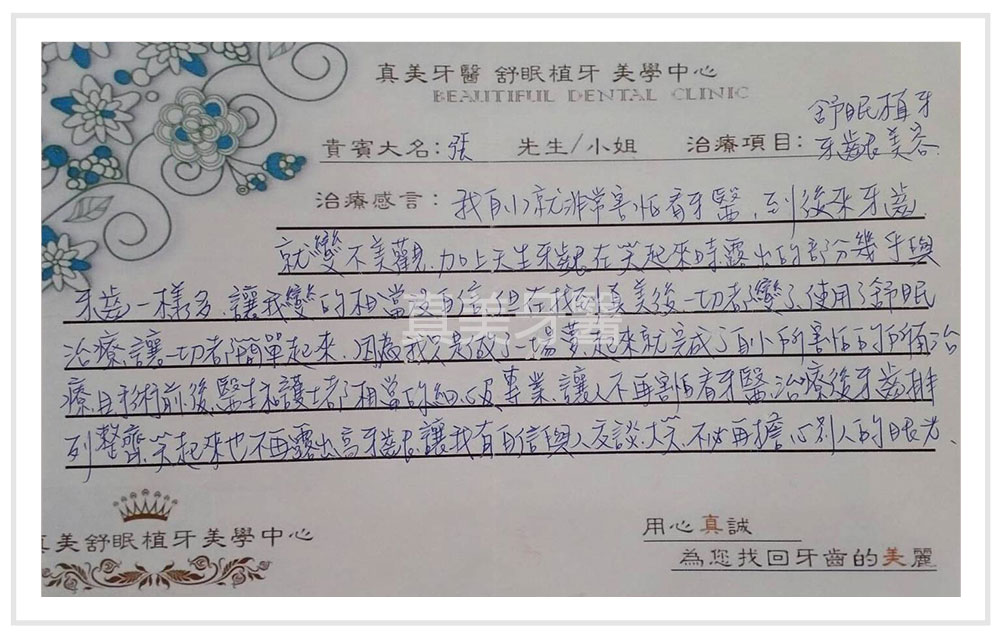 真美牙醫 舒眠植牙 美學中心
BEAUTIFUL DENTAL CLINIC
舒眠植牙
貴賓大名:張 先生/小姐 治療項目:牙齦美容
治療感言:我自小就非常害怕看牙醫,到後來牙齒
就變不美觀,加上天生牙齦在笑起來時露出的部分幾乎與
牙齒一樣多,讓我變的相當沒自信,但在找到真美後一切都變了,使用了舒眠
治療,讓一切都簡單起來,因為我只是做了一場夢,起來就完成了自小所害怕的所有治
療,且手術前後,醫生和護士都相當的細心及專業,讓人不再害怕看牙醫,治療後牙齒排
列整齊,笑起來也不再露出高牙齦,讓我有自信與人交談、大笑,不必再擔心別人的眼光.
真美牙醫
真美舒眠植牙美學中心
用心真誠
為您找回牙齒的美麗